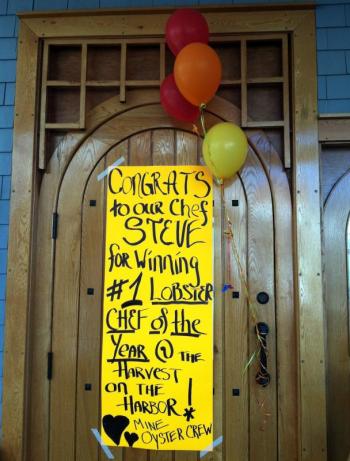 CONGRATS
to our Chef
STEVE
for Winning
#1 LOBSTER
CHEF of the
Year @ THE
HARVEST
ON THE
HARBOR!
MINE
OYSTER CREW